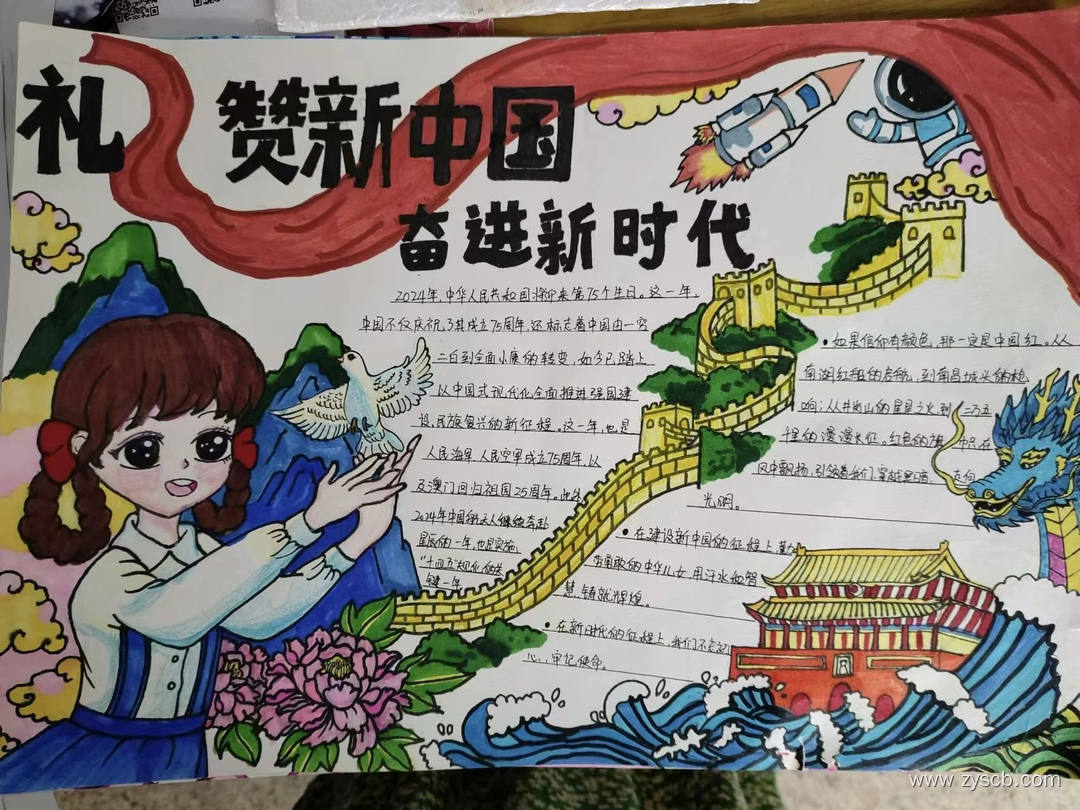 礼赞新中国
奋进新时代
2024年,中华人民共和国将迎来第75个生日。这一年,
中国不仅庆祝了其成立75周年,还标志着中国由一穷
二白到全面小康的转变,如今已踏上
以中国式现代化全面推进强国建
设,民族复兴的新征程。这一年,也是
人民海军、人民空军成立75周年,以
及澳门回归祖国25周年。此外
2024年中国航天人继续奔赴
星辰的一年,也是实施
“十四五”规化的关
键一年
•如果信仰有颜色,那一定是中国红。从
南湖红船的启航,到南昌城头的枪
响;从井冈山的星星之火,到二万五
程的漫漫长征。红色的旗帜,在
风中飘扬,引领着我们穿越黑暗,走向
光明。
•在建设新中国的征程上,勤
劳勇敢的中华儿女,用汗水和智
慧,铸就辉煌。
•在新时代的征程上,我们不忘初
心,牢记使命。
www.zyscb.com